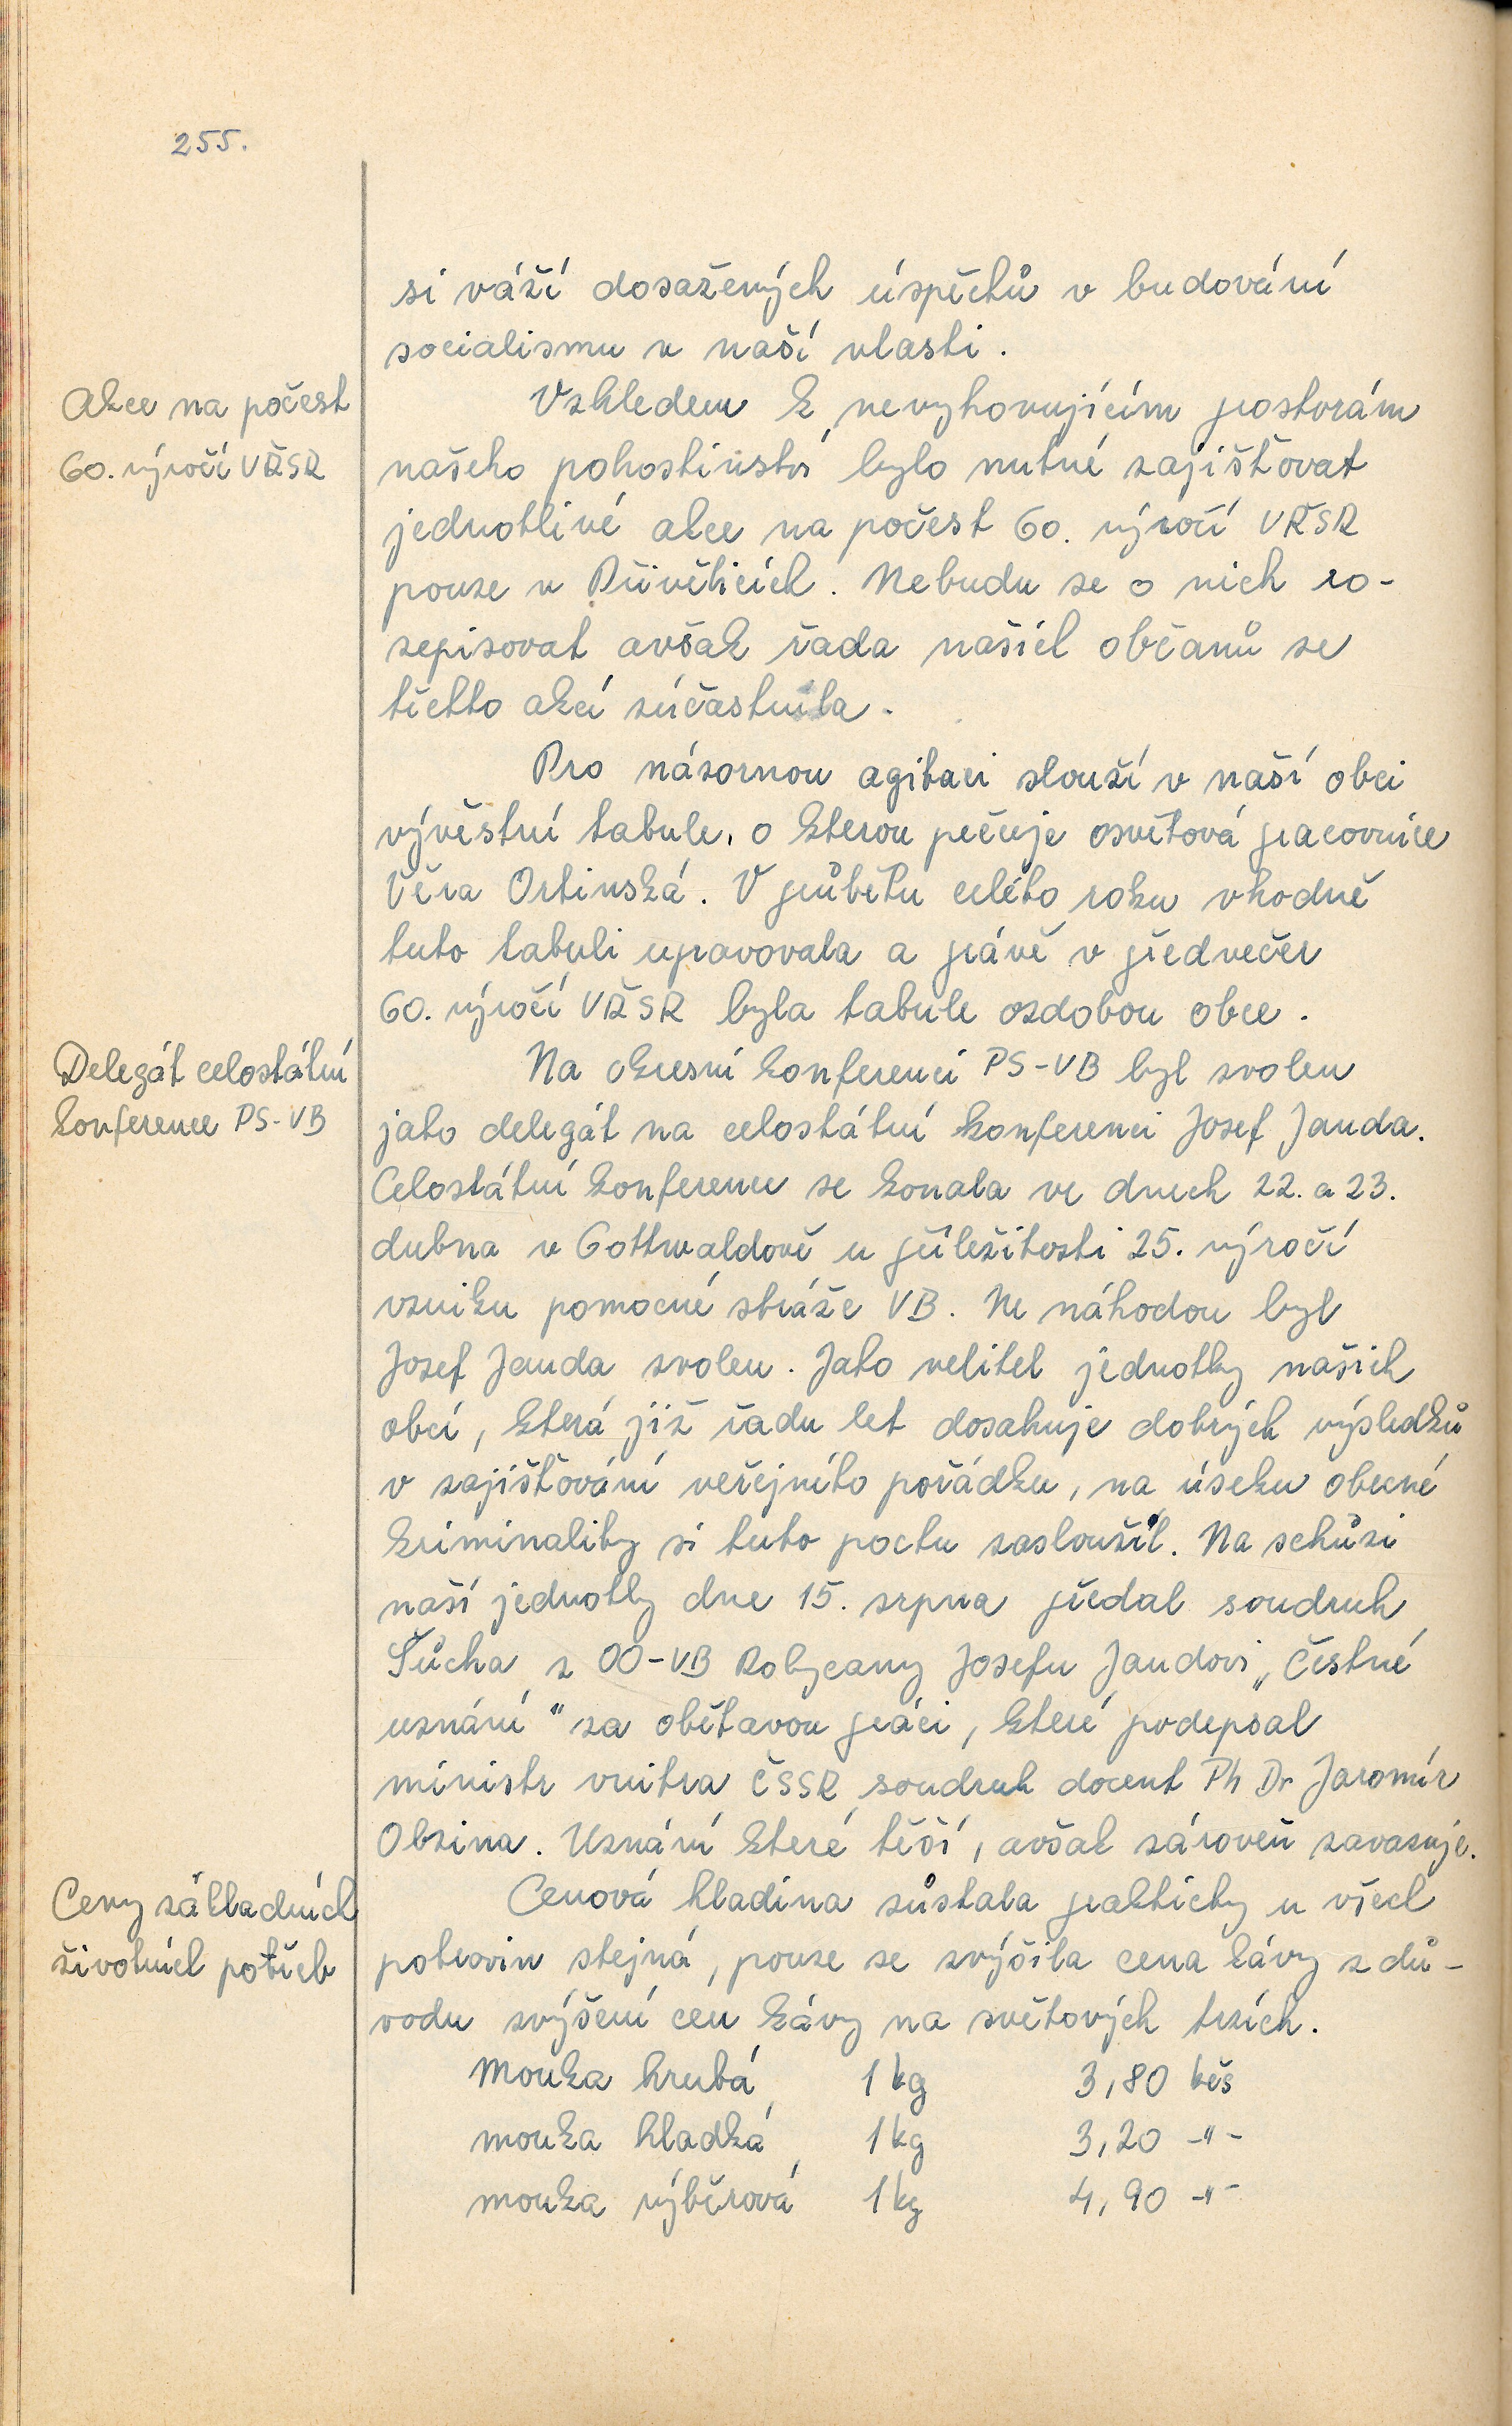 255.
si váží dosažených úspěchů v budování
socialismu v naší vlasti.
Akce na počest
60. výročí VŘSR
Vzhledem k nevyhovujícím prostorám
našeho pohostinství bylo nutné zajišťovat
jednotlivé akce na počest 60. výročí VŘSR
pouze v Přívěticích. Nebudu se o nich ro-
zepisovat avšak řada našich občanů se
těchto akcí zúčastnila.
Pro názornou agitaci slouží v naší obci
vývěstní tabule, o kterou pečuje osvětová pracovnice
Věra Ortinská. V průběhu celého roku vhodně
tuto tabuli upravovala a právě v předvečer
60. výročí VŘSR byla tabule ozdobou obce.
Delegát celostátní
konference PS-VB
Na okresní konferenci PS-VB byl zvolen
jako delegát na celostátní konferenci Josef Janda.
Celostátní konference se konala ve dnech 22. a 23.
dubna v Gottwaldově u příležitosti 25. výročí
vzniku pomocné stráže VB. Ne náhodou byl
Josef Janda zvolen. Jako velitel jednotky našich
obcí, která již řadu let dosahuje dobrých výsledků
v zajišťování veřejného pořádku, na úseku obecné
kriminality si tuto poctu zasloužil. Na schůzi
naší jednotky dne 15. srpna předal soudruh
Šůcha z OO-VB Rokycany Josefu Jandovi „Čestné
uznání" za obětavou práci, které podepsal
ministr vnitra ČSSR soudruh docent Ph Dr Jaromír
Obzina. Uznání které těší, avšak zároveň zavazuje.
Ceny základních
životních potřeb
Cenová hladina zůstala prakticky u všech
potravin stejná, pouze se zvýšila cena kávy z dů-
vodu zvýšení cen kávy na světových trzích.
Mouka hrubá 1 kg 3,80 kčs
mouka hladká 1 kg 3,20 -"-
mouka výběrová 1 kg 4,90 -"-